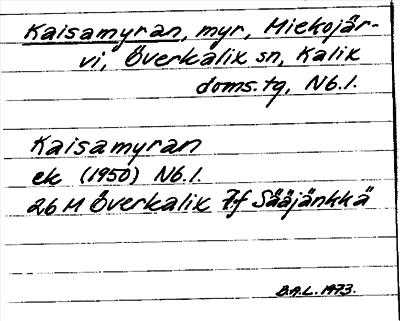 Kaisamyran, myr, Miekojär-
vi, Överkalix sn, Kalix
doms. tg, Nb. l.
Kaisamyran
ek (1950) Nb. l.
26 M Överkalix 7f Sääjänkkä
B.A.L. 1973.